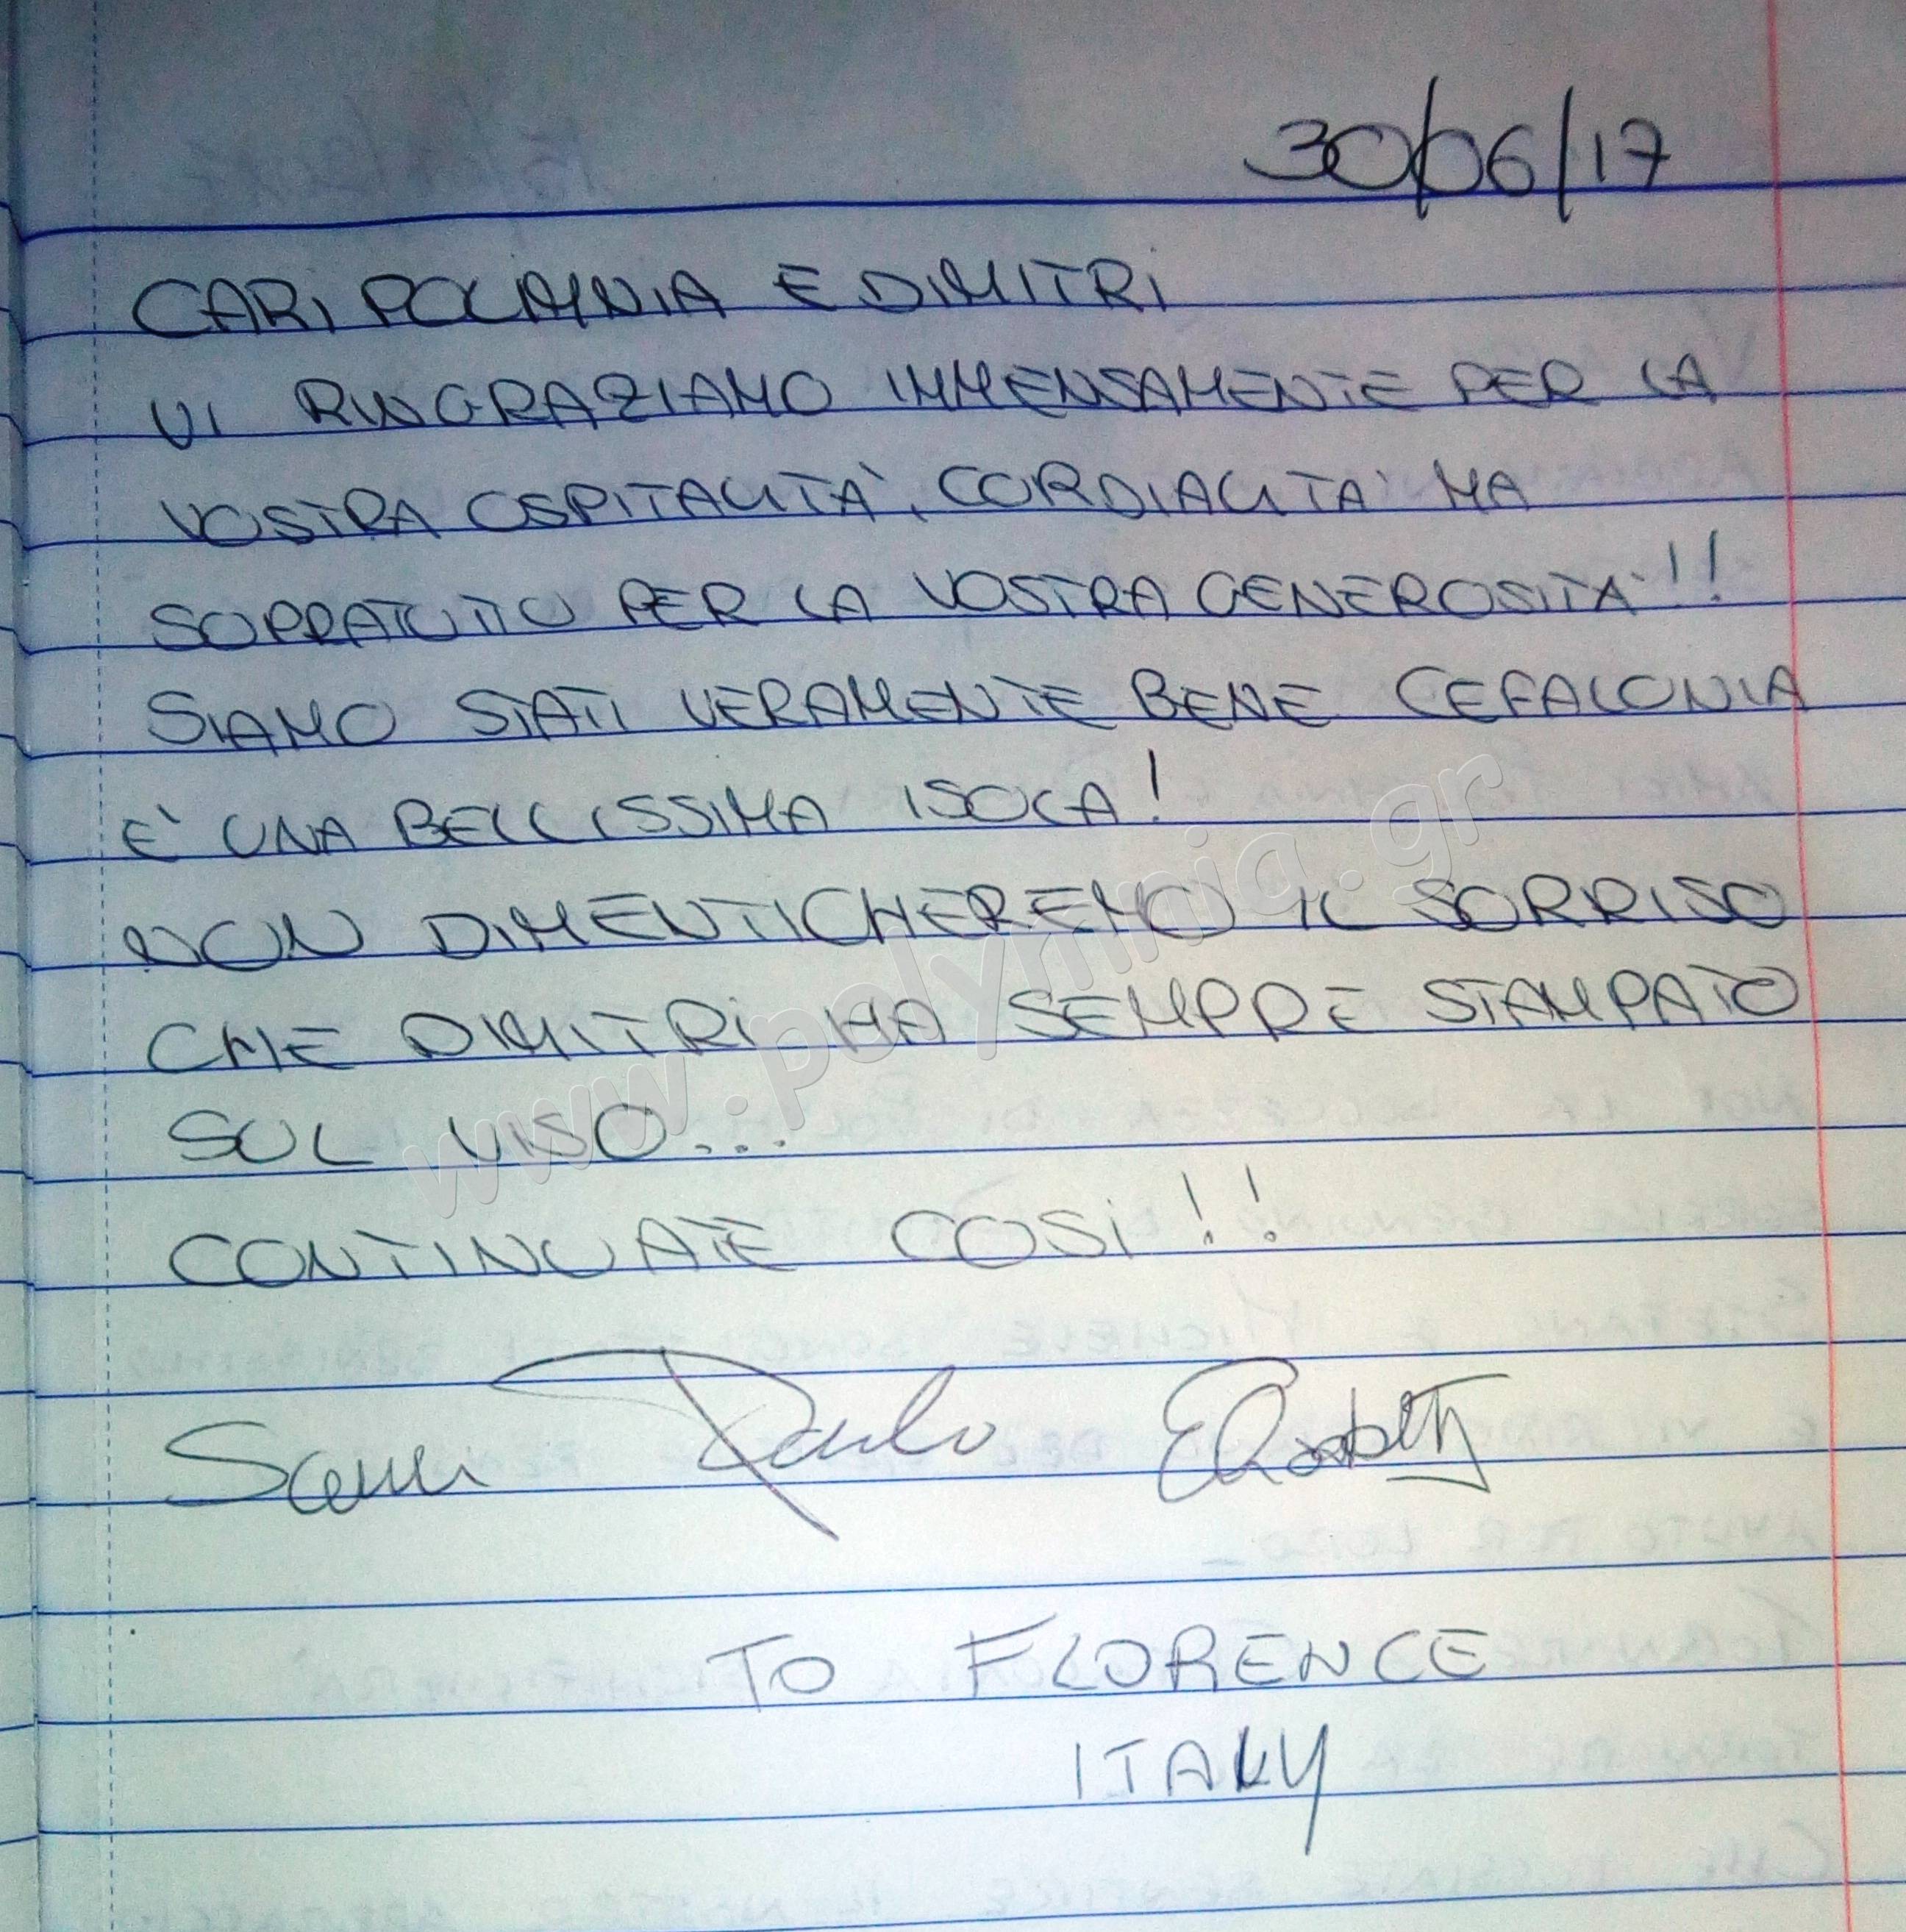 30/06/17
CARI POLIMNIA E DIMITRI
VI RINGRAZIAMO IMMENSAMENTE PER LA
VOSTRA OSPITALITA', CORDIALITA' MA
SOPRATUTTO PER LA VOSTRA GENEROSITA'!!
SIAMO STATI VERAMENTE BENE CEFALONIA
E' UNA BELLISSIMA ISOLA!
NON DIMENTICHEREMO IL SORRISO
CHE DIMITRI HA SEMPRE STAMPATO
SUL VISO...
CONTINUATE COSI!!
Paulo
TO FLORENCE
ITALY
www.polymnia.gr